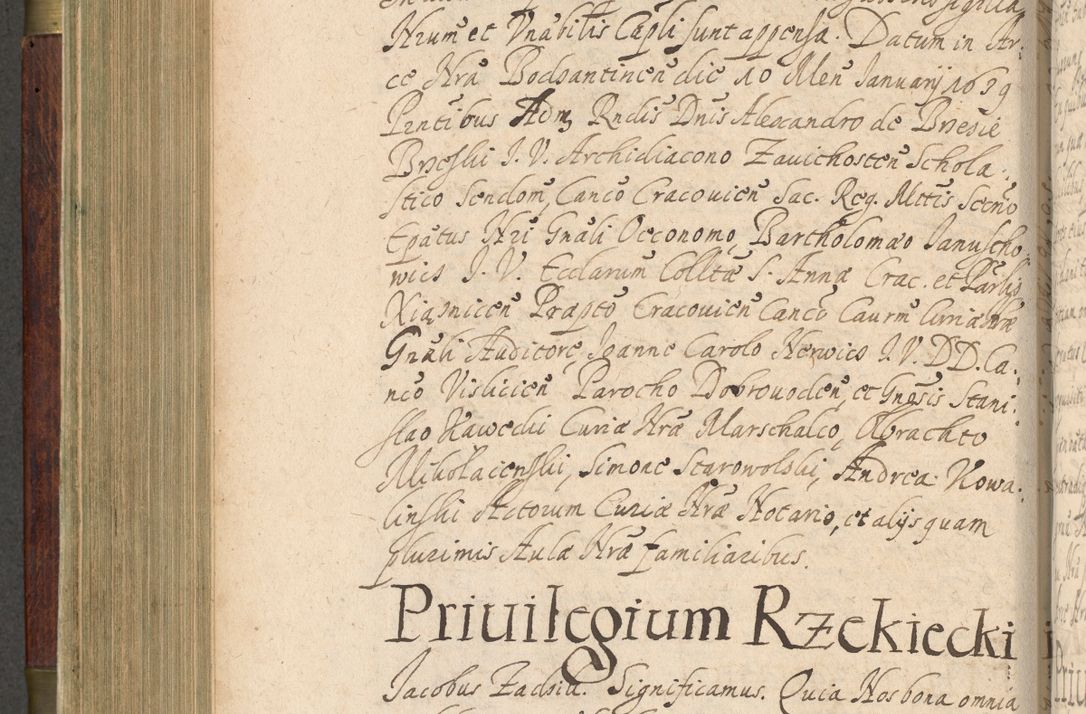 Nrum et Vnabilis Capli sunt appensa. Datum in Ar:
ce Nra Bodzantinen die 10 Men Januarij 1639
Pntibus Adm Rndis Dnis Alexandro de Brzesie
Brzeski I. V. Archidiacono Zauichosten Schola:
stico Sendom, Canco Cracouien Sac. Reg. Mttis Secrio
Epatus Nri Gnali Oeconomo, Bartholomæo Januscho:
wics I. V. Ecclarum Colltæ S. Annæ Crac. et Parlis
Xiąsnicen Præpto Cracouien Canco Caurm Curiæ Nræ
Gnali Auditore, Joanne Carolo Nerwics I. V. DD. Ca:
nco Vislicien Parocho Dobrouoden, et Gnosis Stani:
slao Kawecki Curiæ Nræ Marschalco, Olbrachto
Mikolaienski, Simone Starowolski, Andrea Nowa:
linski Actorum Curiæ Nræ Notario, et alijs quam
plurimis Aulæ Nræ familiaribus.
Priuilegium Rzekiecki
Jacobus Zadsik. Significamus. Quia Nos bona omnia